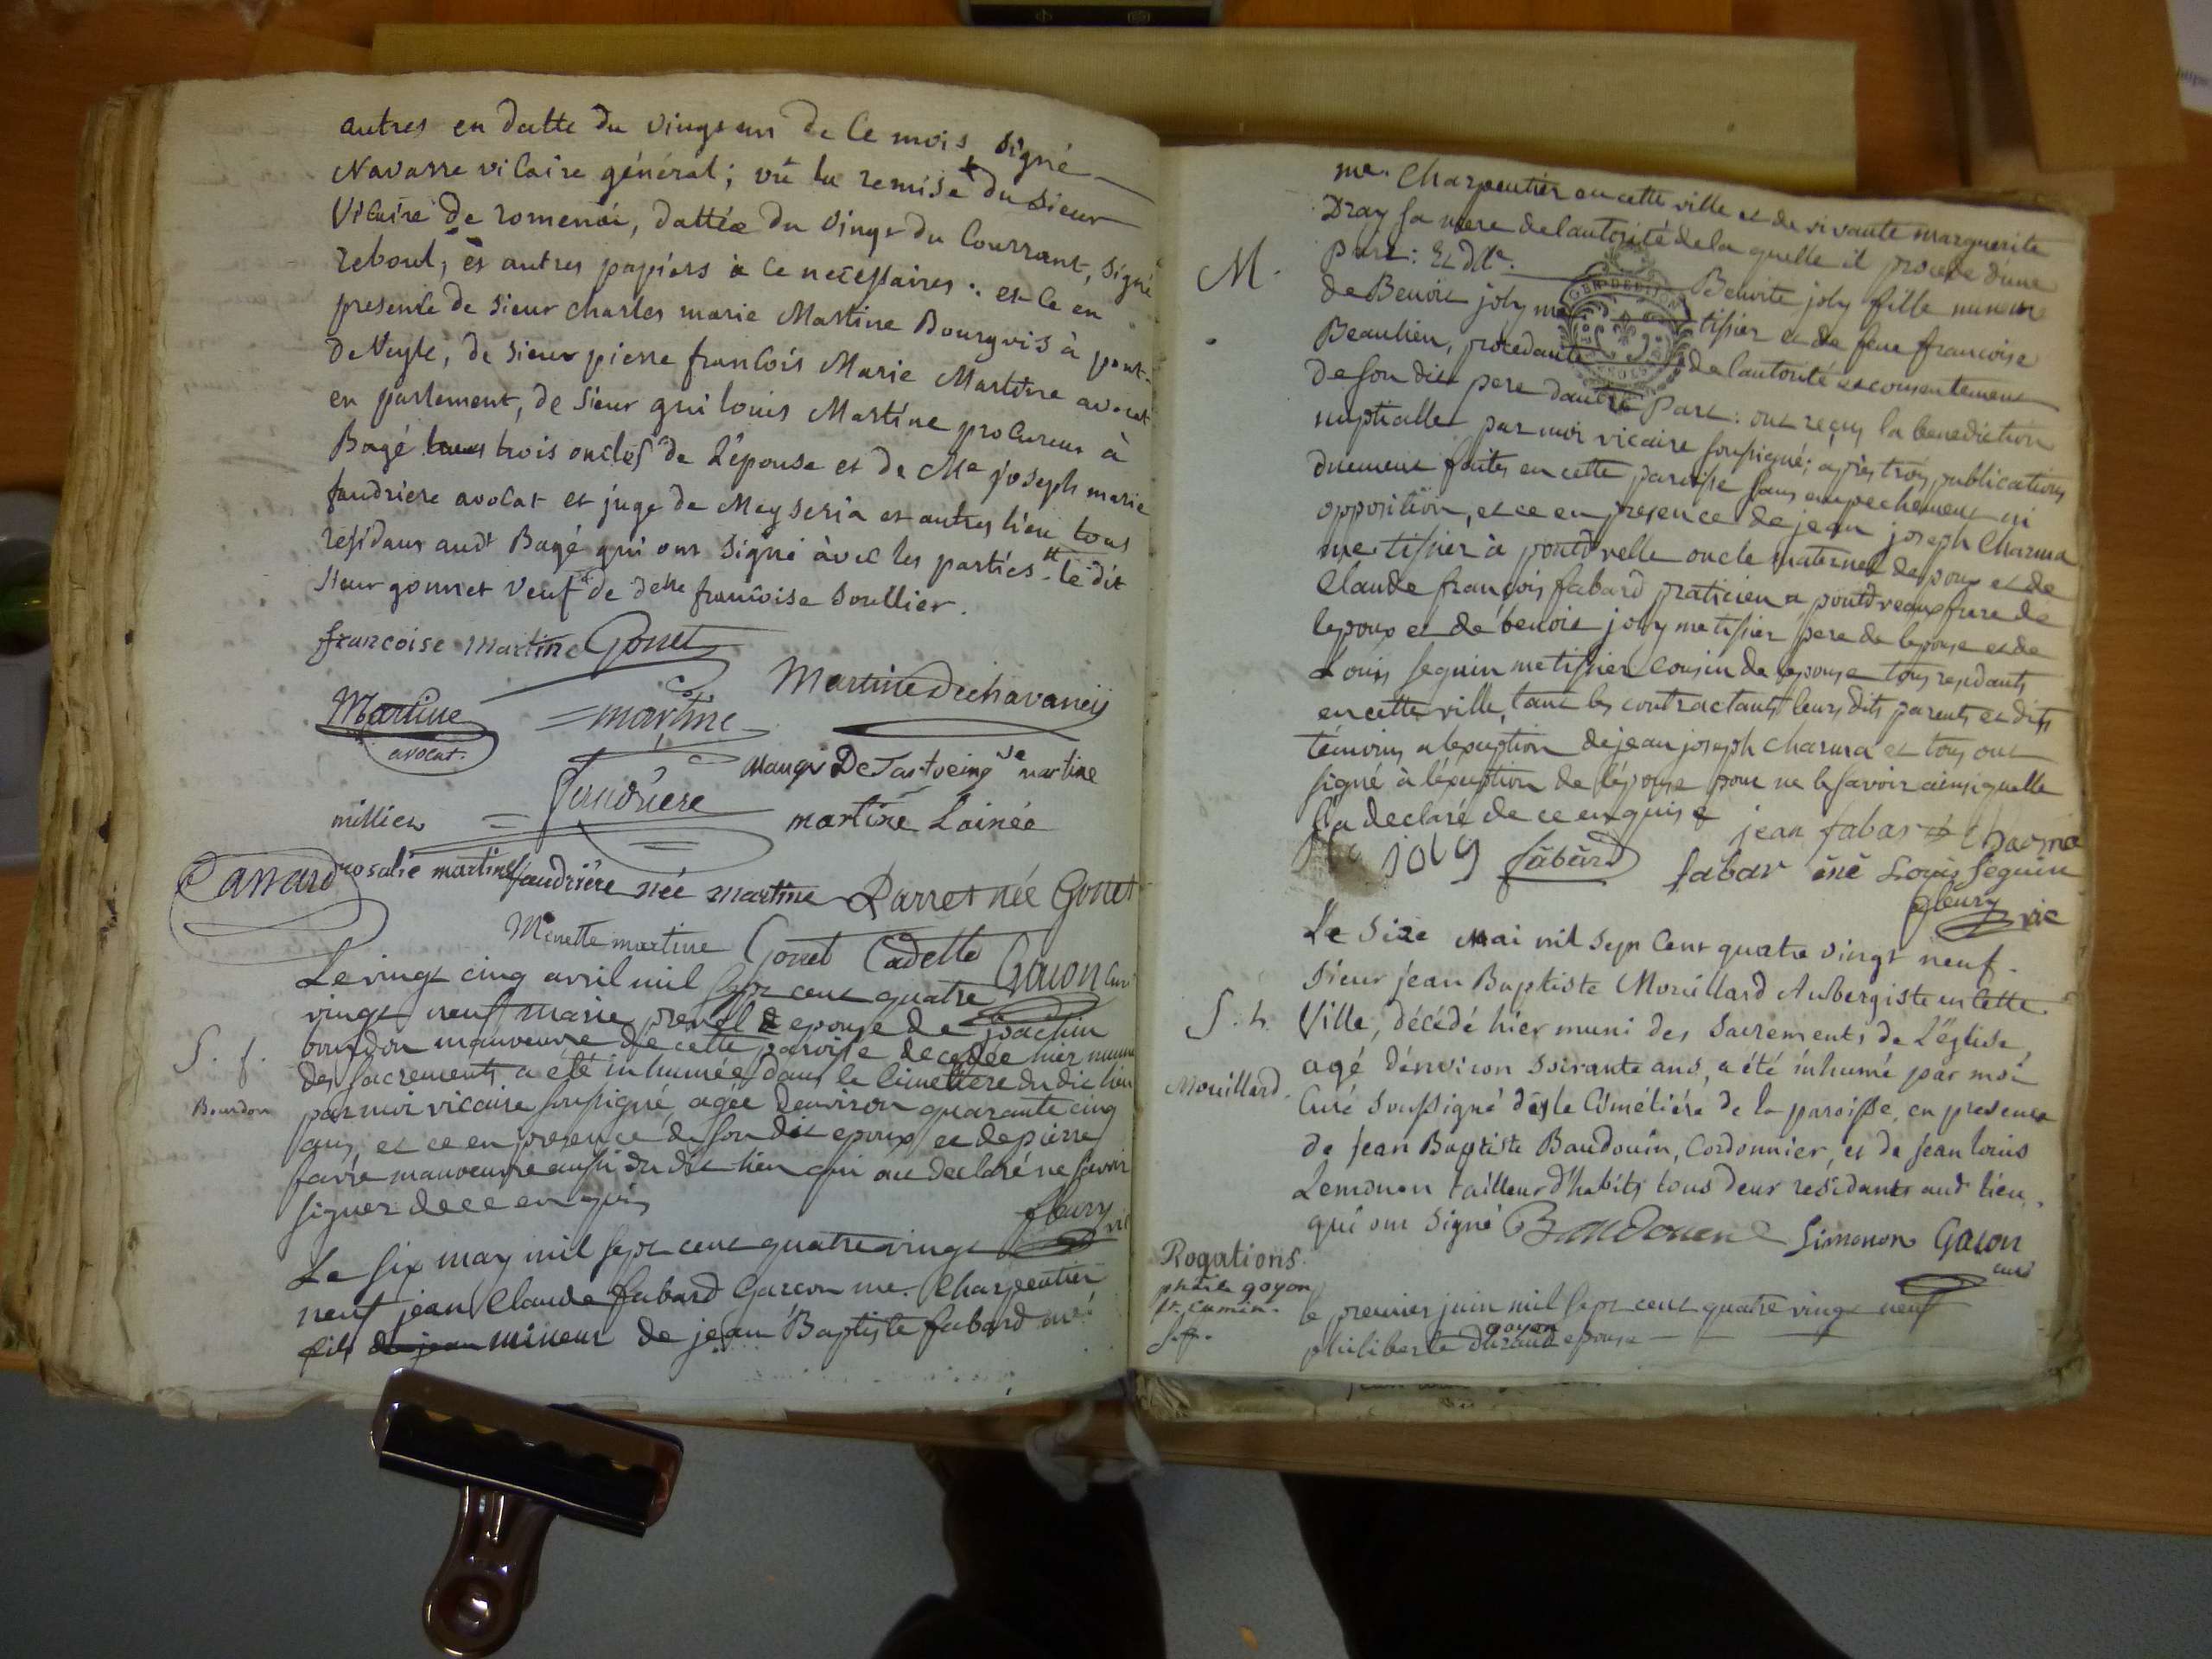 autres en datte du vingt un de ce mois, signé
Navarre vicaire général; vû la remise du sieur
vicaire de romenai, dattée du vingt du courrant, signé
reboul, et autres papiers à ce necessaires: et ce en
presence de sieur charles marie Martine Bourgeois à pont-
de Veyle, de sieur pierre françois Marie Martine avocat
en parlement, de sieur gui louis Martine procureur à
Bagé tous trois oncles de l'épouse et de Me joseph marie
faudriere avocat et juge de Meyseria et autres lieu tous
residans audt Bagé qui ont signé avec les parties. le dit
sieur gonnet veuf de delle françoise soullier.
francoise martine Gonet
Martine martine Martine Dechavaneis
avocat
Faudriere martine
millien martine Lainée
Canard rosalie martine faudriére née martine Parret née Gonet
Minette martine Gonet Cadette Gacon curé
Le vingt cinq avril mil sept cent quatre
vingt neuf marie prevel epouse de joachim
bourdon manoeuvre de cette paroisse decedée hier munie
des sacrements a eté inhumée dans le cimettiere du dit lieu
par moi vicaire soussigné, agée denviron quarante cinq
ans, et ce en presence de son dit epoux et de pierre
favre manoeuvre aussi du dit lieu qui ont declaré ne savoir
signer de ce enquis
fleury vic
S. f.
Bourdon
Le six may mil sept cent quatre vingt
neuf jean Claude fabard garcon me. Charpentier
fils mineur de jean Baptiste fabard
me. Charpentier en cette ville et de vivante marguerite
Dray sa mere de lautorité de la quelle il procede d'une
part: Et dlle. Benoite joly fille mineure
M.
de Benoit joly me tissier et de feue francoise
Beaulieu, procedante de lautorité et consentement
de son dit pere dautre part: ont reçus la benediction
nuptialle par moi vicaire soussigné; après trois publications
duement faites en cette paroisse sans empechement ni
opposition, et ce en presence de jean joseph Charma
me. tissier à pontdvelle oncle maternel depoux et de
Claude françois fabard praticien a pontdveaux frere de
lepoux et de benoit joly me tissier pere de lepouse et de
Louis seguin me tissier cousin de lepouse tous residants
en cette ville, tant les contractants leurs dits parents et dits
témoins a lexeption de jean joseph charma et tous ont
signé à léxeption de lépouse pour ne le savoir ainsi quelle
l'a declaré de ce enquise jean fabar
joly fâbârd fabar êné Louis seguin
fleury vic
Le Size mai mil sept cent quatre vingt neuf.
Sieur jean Baptiste Mouillard Aubergiste en cette
S. h.
Ville, décédé hier muni des sacrements de L'église,
agé dénviron soixante ans, a été inhumé par moi
Mouillard.
Curé soussigné ds le Cimétiére de la paroisse, en presence
de jean Baptiste Baudouin, Cordonnier, et de jean louis
Lemonon tailleur d'habits tous deux residants audt lieu,
qui ont signé Baudouin Limonon Gacon
curé
Rogations.
goyon
le premier juin mil sept cent quatre vingt neuf
goyon
philiberte epouse